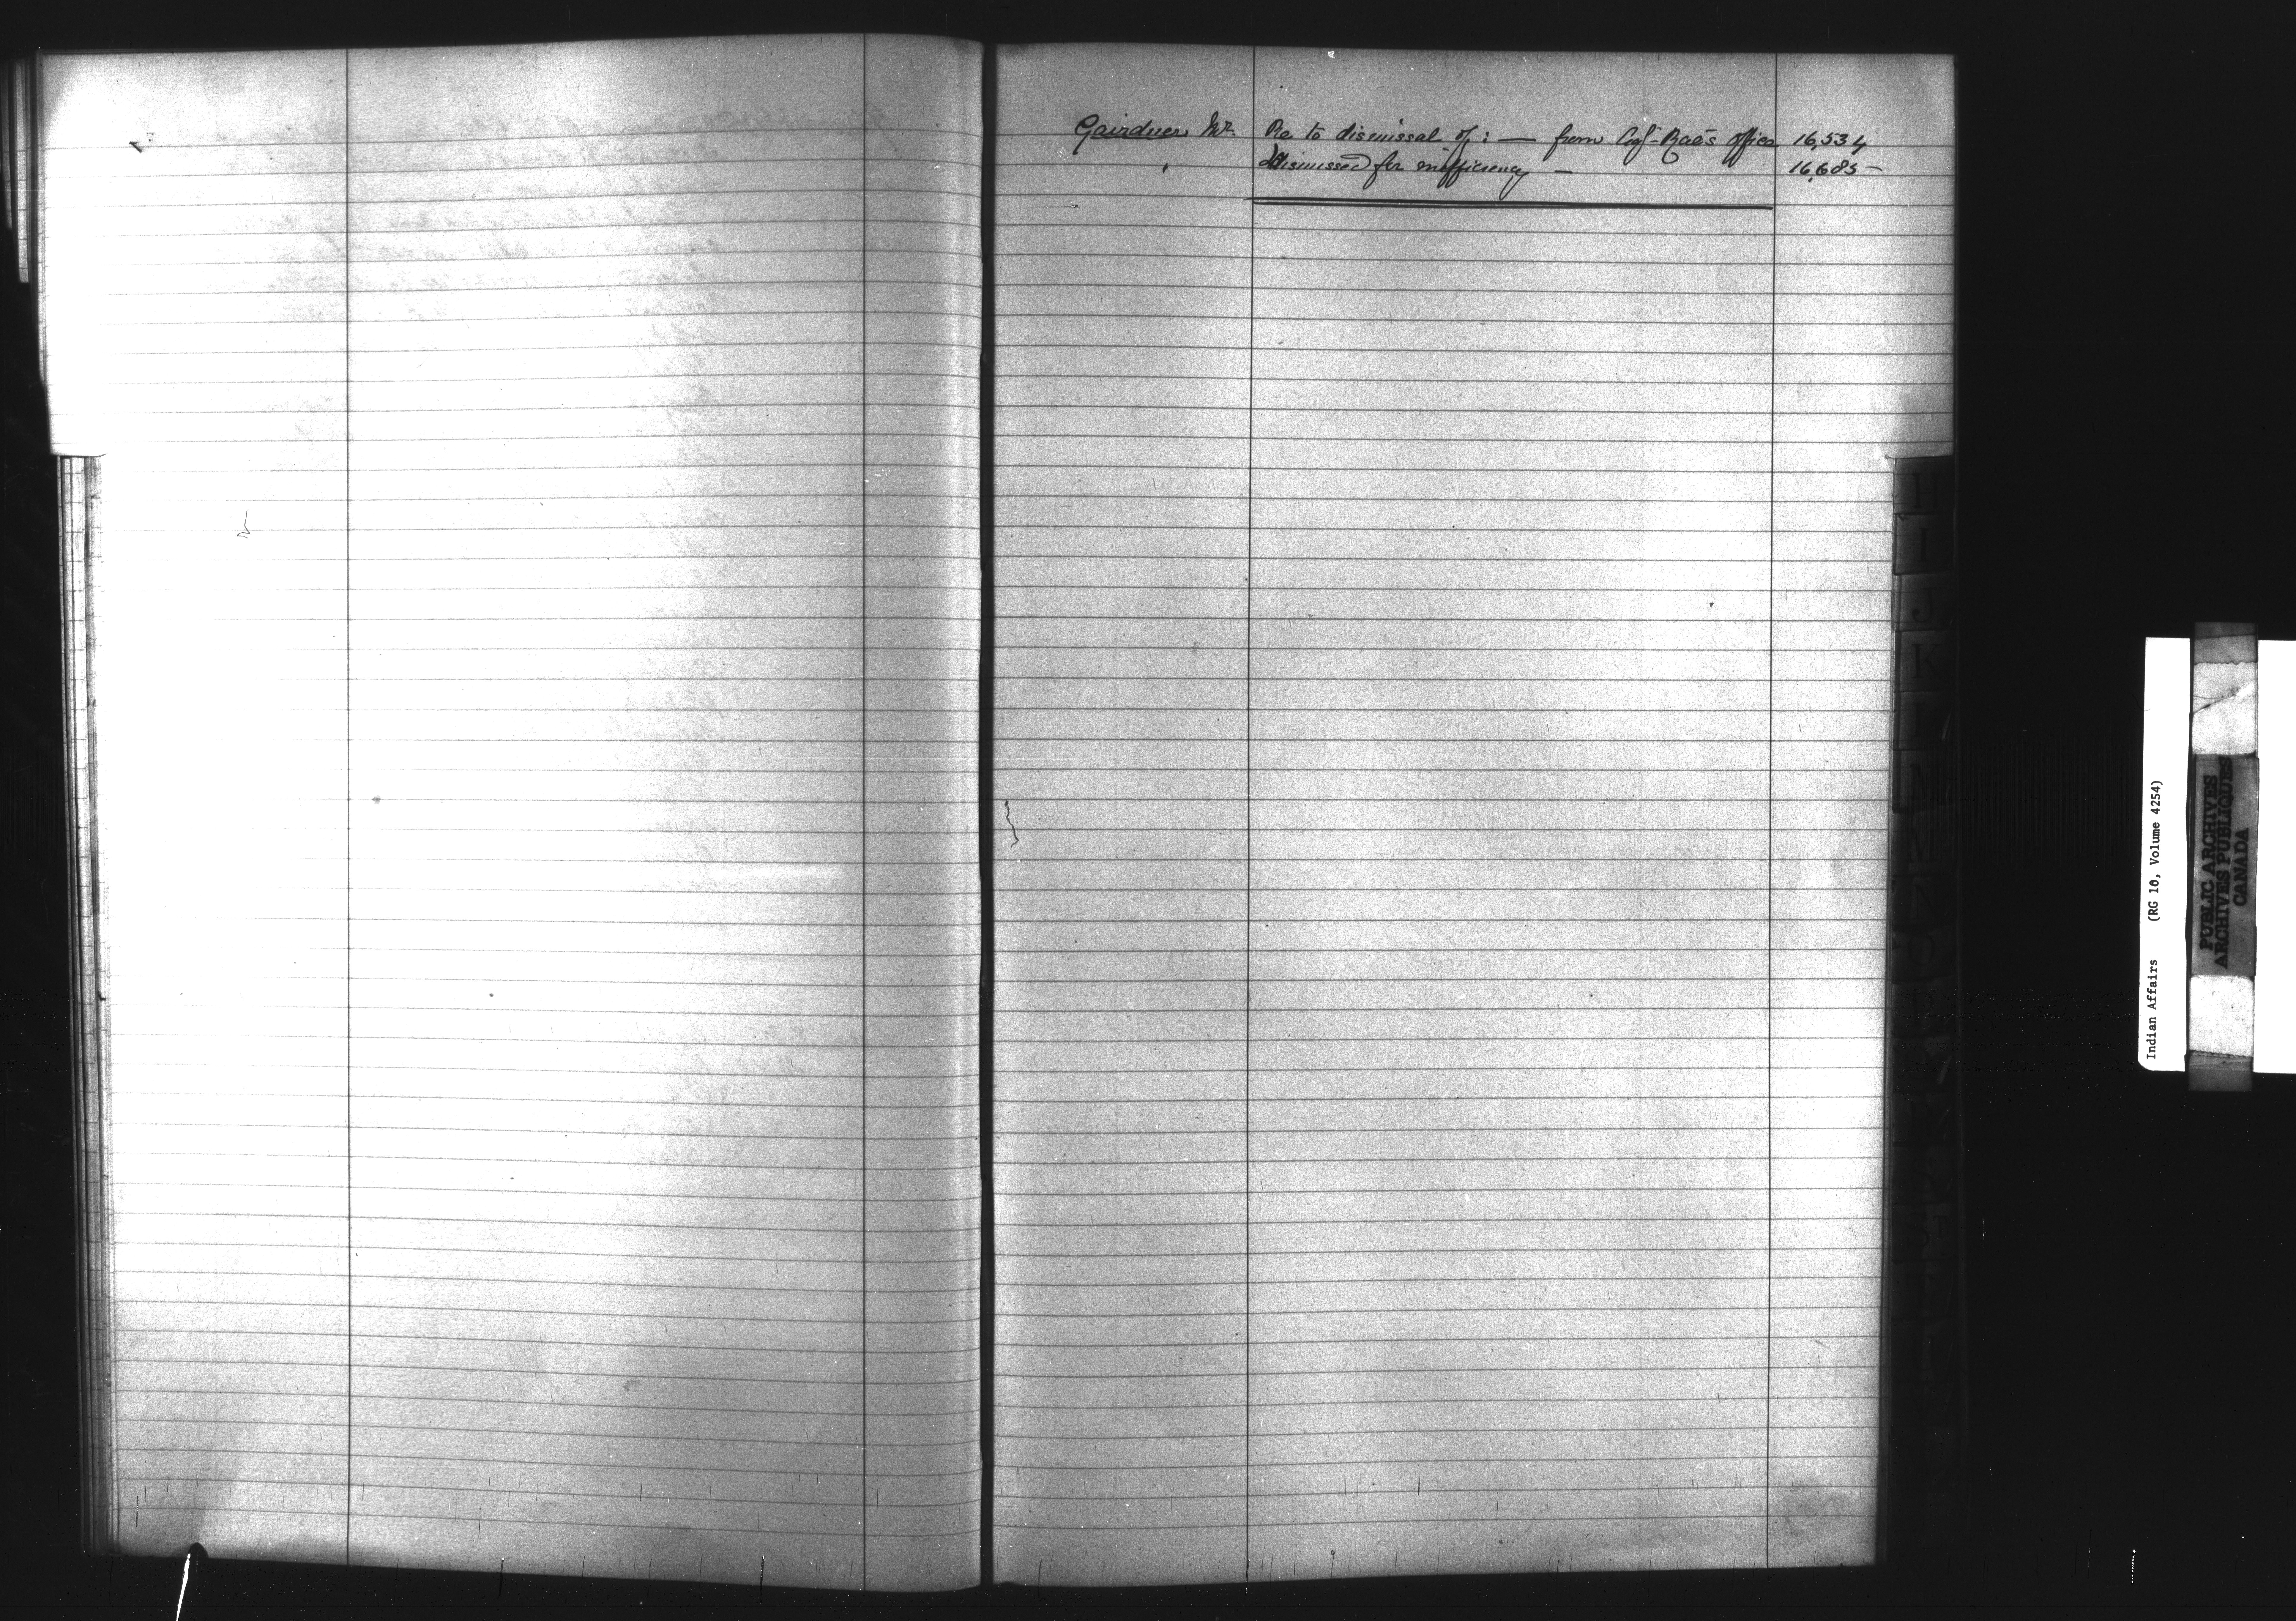 Gairdner Mr. Re to dismissal of : — from Agt- Rae's office 16,534
" Dismissed for inefficiency — 16,685 —
H
I
J
K
L
M
Indian Affairs (RG 10, Volume 4254)
PUBLIC ARCHIVES
ARCHIVES PUBLIQUES
CANADA